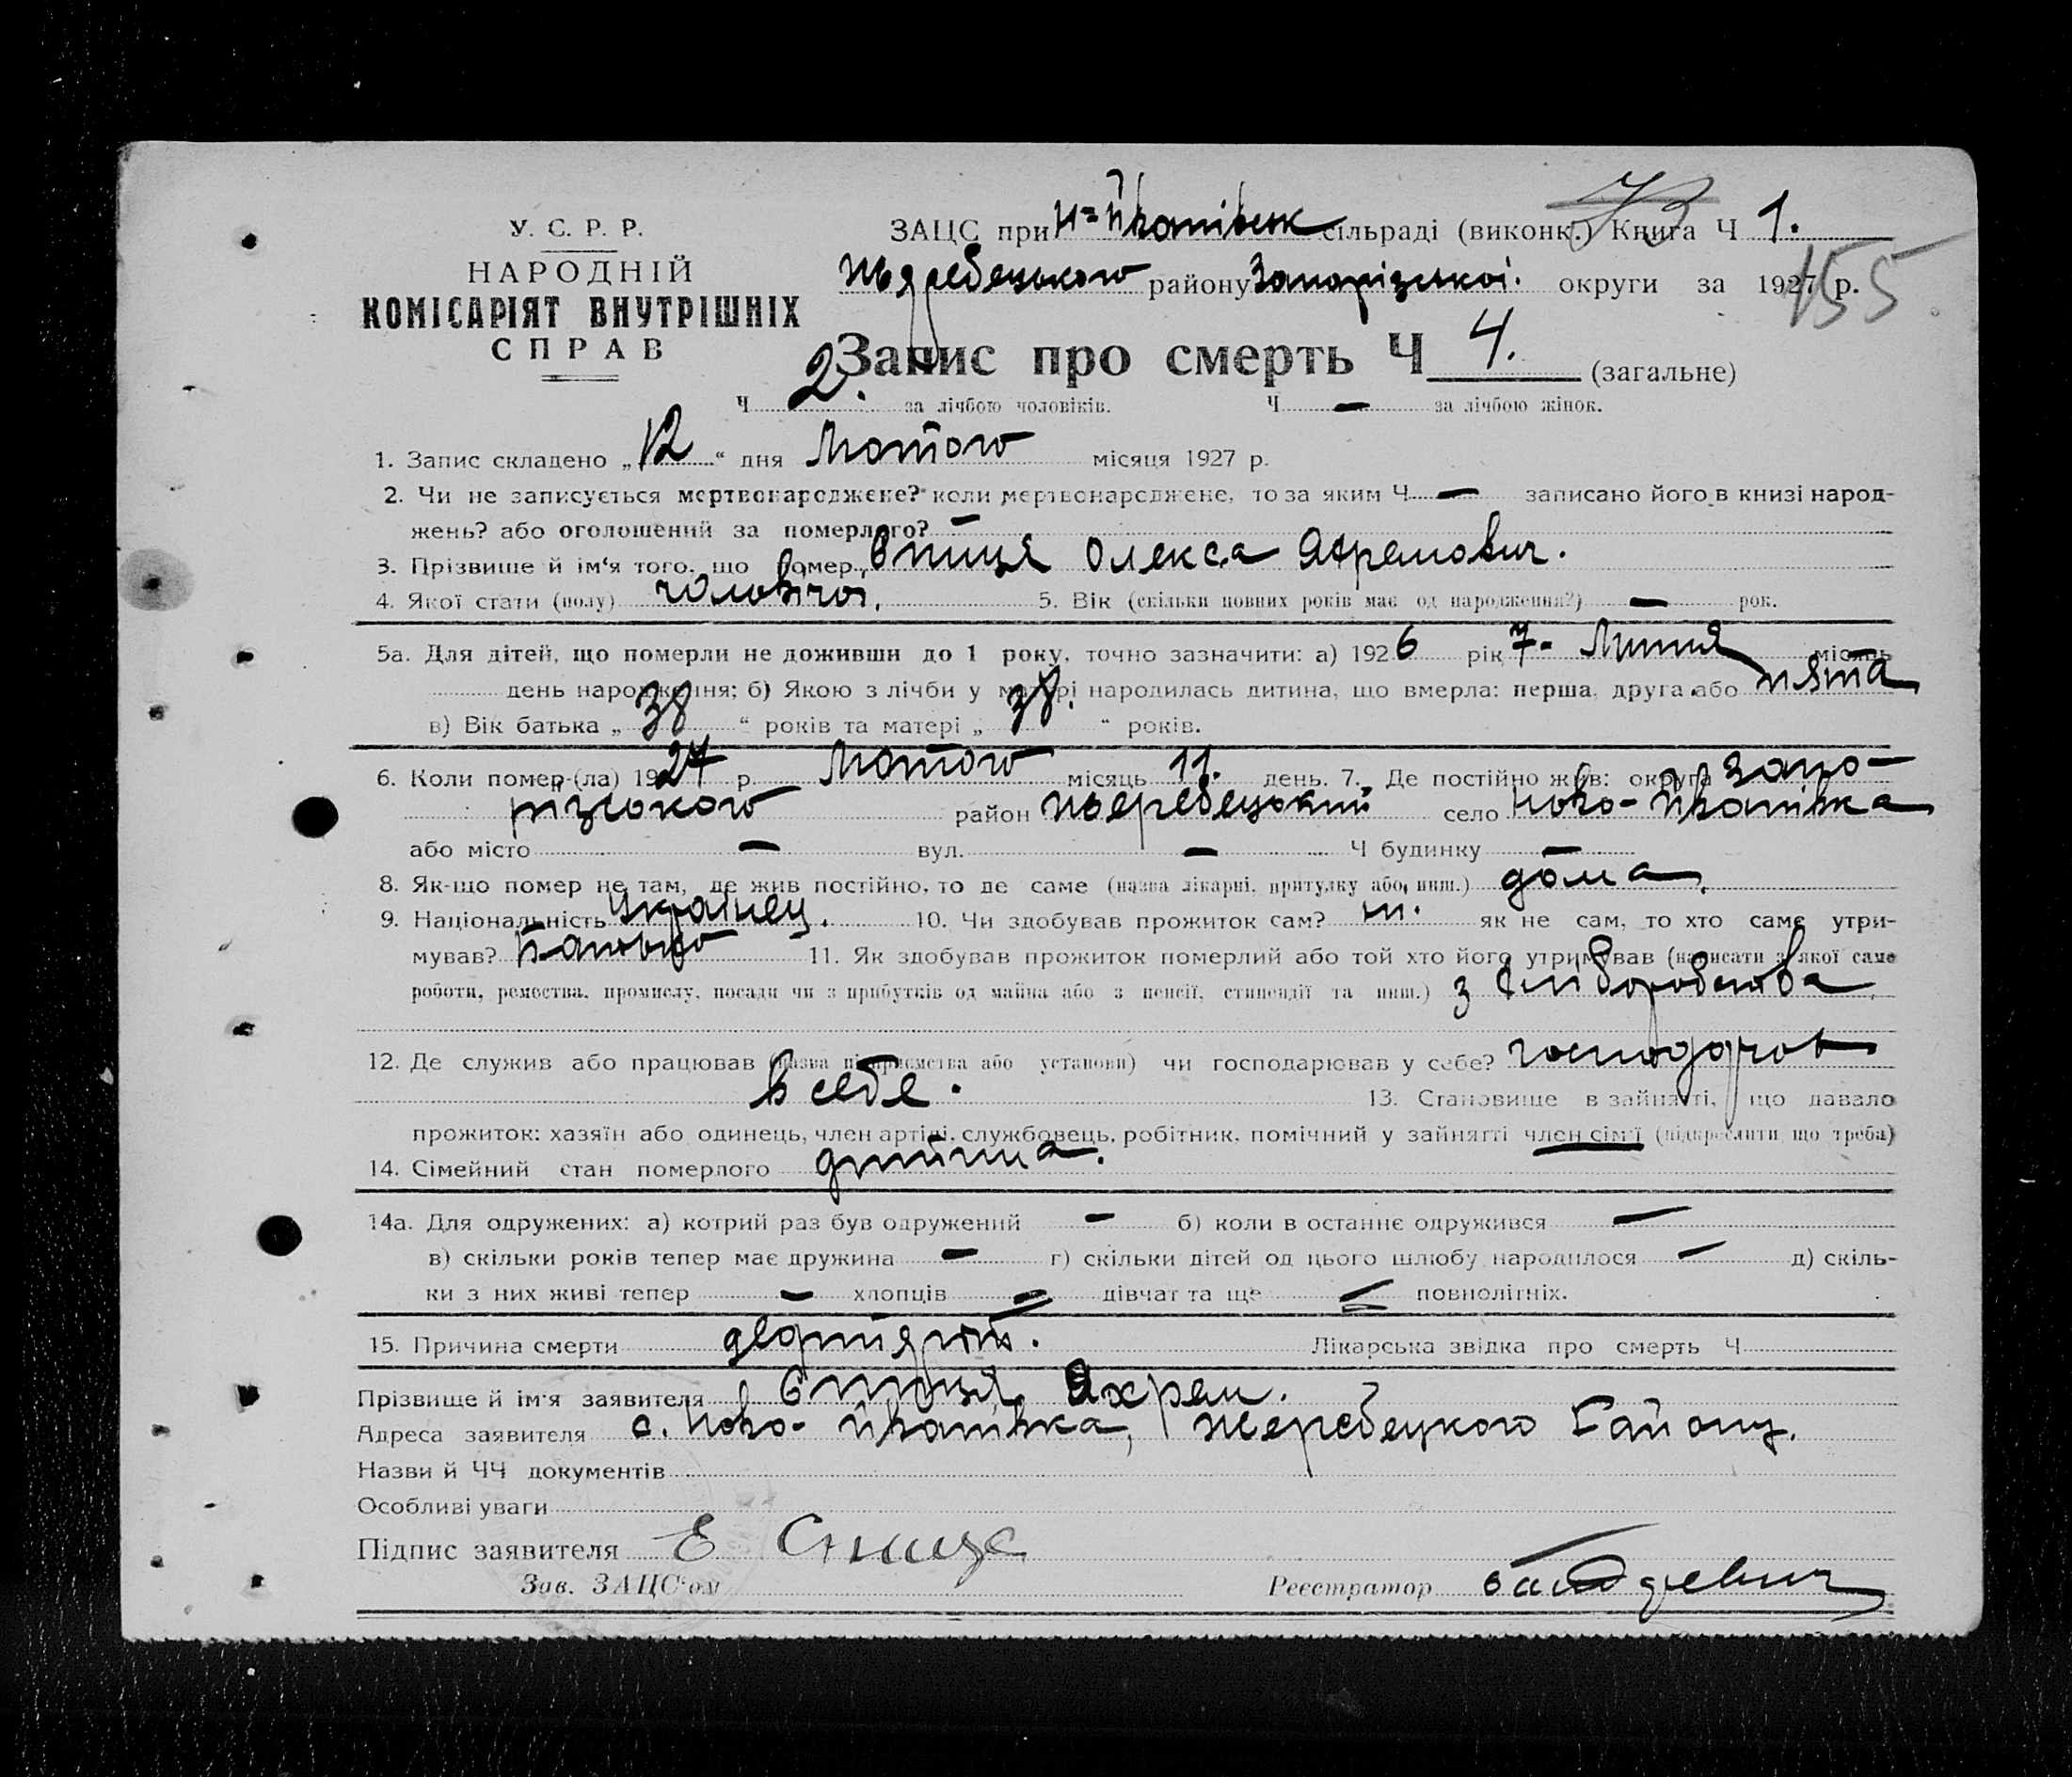 У. С. Р. Р.
НАРОДНІЙ
КОМІСАРІЯТ ВНУТРІШНІХ
СПРАВ
ЗАЦС при Н=Іванівськ сільраді (виконк.) Книга Ч 1.
Жеребецького району Запорізької. округи за 1927 р.
155
Запис про смерть Ч 4. (загальне)
Ч 2. за лічбою чоловіків. Ч — за лічбою жінок.
1. Запис складено „12“ дня Лютого місяця 1927 р.
2. Чи не записується мертвонароджене? коли мертвонароджене, то за яким Ч — записано його в книзі народ-
жень? або оголошений за померлого? —
3. Прізвище й ім‘я того, що помер Спиця Олекса Яхремович.
4. Якої стати (полу) чоловічої. 5. Вік (скільки повних років має од народження?) — рок.
5а. Для дітей, що померли не доживши до 1 року, точно зазначити: а) 1926 рік 7- Липня місяць
день народження; б) Якою з лічби у матері народилась дитина, що вмерла: перша, друга або пята
в) Вік батька „38“ років та матері „38.“ років.
6. Коли помер-(ла) 1927 р. Лютого місяць 11. день. 7. Де постійно жив: округа Запо-
різького район Жеребецький село Ново-Іванівка
або місто — вул. — Ч будинку —
8. Як-що помер не там, де жив постійно, то де саме (назва лікарні, притулку або инш.) дома.
9. Національність Українец. 10. Чи здобував прожиток сам? ні. як не сам, то хто саме утри-
мував? Батько 11. Як здобував прожиток померлий або той хто його утримував (написати з якої саме
роботи, ремества, промислу, посади чи з прибутків од майна або з пенсії, стипендії та инш.) з хліборобства
12. Де служив або працював (назва підприємства або установи) чи господарював у себе? господарюв
в себе. 13. Становище в зайнятті, що давало
прожиток: хазяїн або одинець, член артілі, службовець, робітник, помічний у зайнятті член сім‘ї (підкреслити що треба)
14. Сімейний стан померлого дитина.
14а. Для одружених: а) котрий раз був одружений — б) коли в останнє одружився —
в) скільки років тепер має дружина — г) скільки дітей од цього шлюбу народилося — д) скіль-
ки з них живі тепер — хлопців — дівчат та ще — повнолітніх.
15. Причина смерти Лікарська звідка про смерть Ч
Прізвище й ім‘я заявителя Спиця Яхрем.
Адреса заявителя с. Ново-Іванівка, Жеребецкого Району.
Назви й ЧЧ документів
Особливі уваги
Підпис заявителя Е Спица
Зав. ЗАЦС‘ом Реєстратор